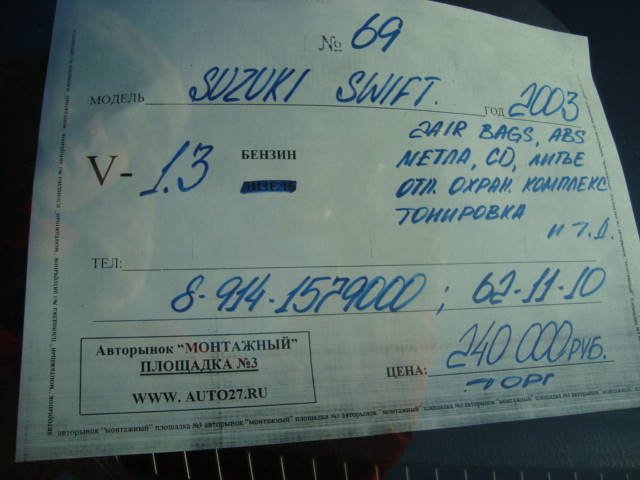 № 69
МОДЕЛЬ SUZUKI SWIFT. ГОД 2003
V- 1.3 БЕНЗИН
ДИЗЕЛЬ
2AIR BAGS, ABS
МЕТЛА, CD, ЛИТЬЕ
ОТЛ. ОХРАН. КОМПЛЕКС
ТОНИРОВКА
И Т.Д.
ТЕЛ:
8-914-1579000 ; 62-11-10
Авторынок “МОНТАЖНЫЙ”
ПЛОЩАДКА №3
WWW. AUTO27.RU
ЦЕНА: 240 000 РУБ.
ТОРГ
авторынок "монтажный" площадка №3 авторынок "монтажный" площадка №3 авторынок "монтажный" площадка №3 авторынок "монтажный"